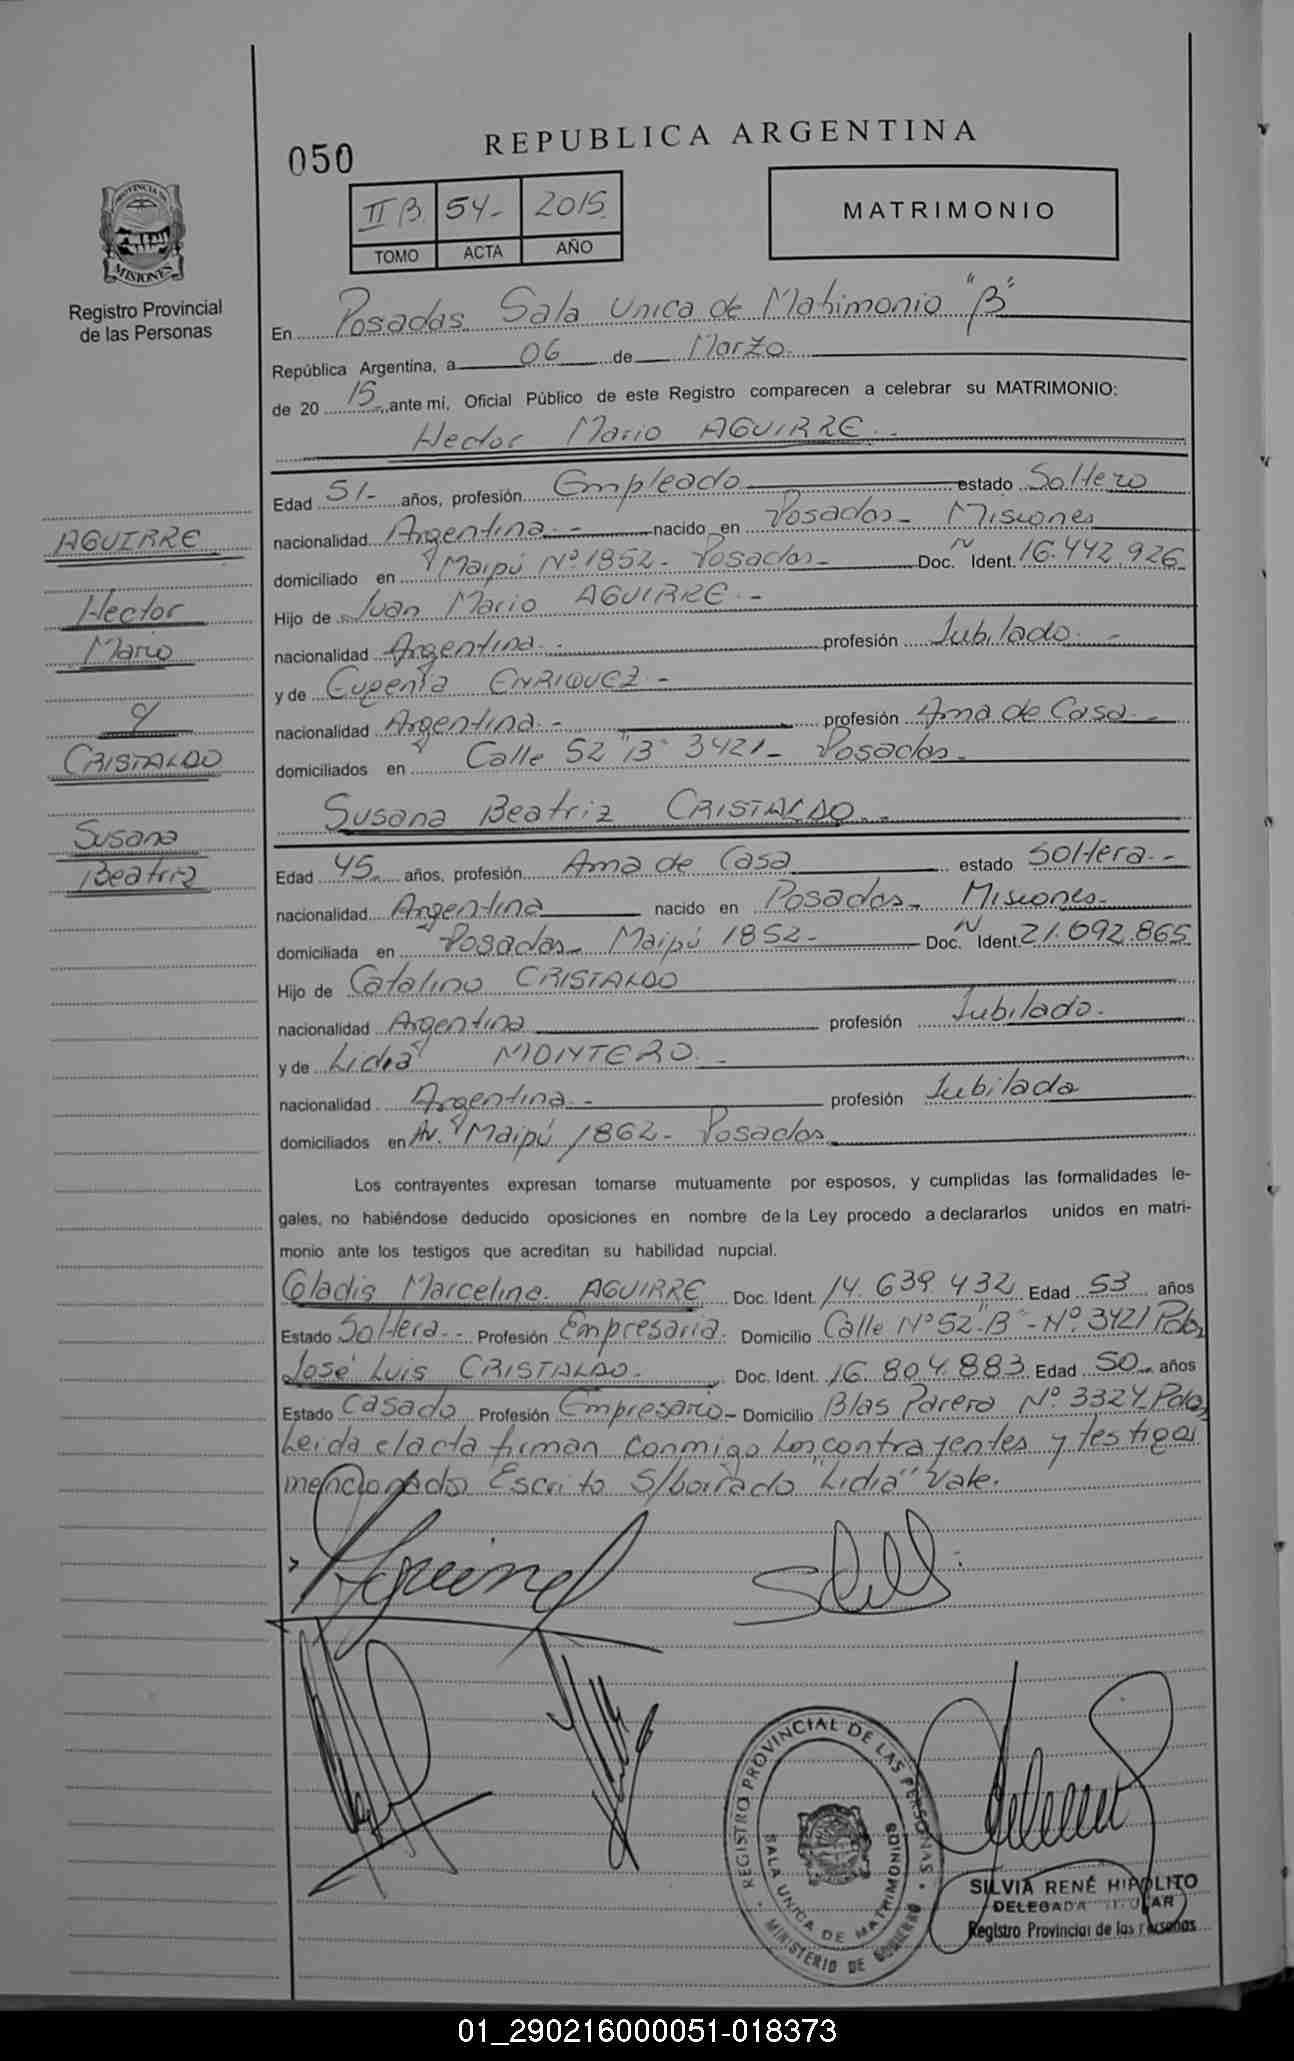 REPUBLICA ARGENTINA
050
II B 54- 2015
TOMO ACTA AÑO
MATRIMONIO
PROVINCIA DE
MISIONES
Registro Provincial
de las Personas
En Posadas Sala Unica de Matrimonio "B"
República Argentina, a 06 de Marzo
de 20 15 ante mi, Oficial Público de este Registro comparecen a celebrar su MATRIMONIO:
Hector Mario AGUIRRE.-
Edad 51- años, profesión Empleado estado Soltero
nacionalidad Argentina.- nacido en Posadas- Misiones
domiciliado en Maipú Nº 1852- Posadas- Doc. N Ident. 16.442.926
Hijo de Juan Mario AGUIRRE.-
nacionalidad Argentina.- profesión Jubilado.-
y de Eugenia ENRIQUEZ.-
nacionalidad Argentina.- profesión Ama de Casa.-
domiciliados en Calle 52 "B" 3421- Posadas-
Susana Beatriz CRISTALDO.-
Edad 45- años, profesión Ama de Casa estado Soltera.-
nacionalidad Argentina nacido en Posadas- Misiones-
domiciliada en Posadas- Maipú 1852- Doc. N Ident. 21.692.865
Hijo de Catalino CRISTALDO
nacionalidad Argentina profesión Jubilado.
y de Lidia MONTERO.-
nacionalidad Argentina.- profesión Jubilada
domiciliados en Av. Maipú 1862- Posadas
AGUIRRE
Hector
Mario
y
CRISTALDO
Susana
Beatriz
Los contrayentes expresan tomarse mutuamente por esposos, y cumplidas las formalidades le-
gales, no habiéndose deducido oposiciones en nombre de la Ley procedo a declararlos unidos en matri-
monio ante los testigos que acreditan su habilidad nupcial.
Gladis Marcelina AGUIRRE Doc. Ident. 14.639.432 Edad 53 años
Estado Soltera.- Profesión Empresaria. Domicilio Calle Nº 52 "B"- Nº 3421 Pdas
José Luis CRISTALDO.- Doc. Ident. 16.804.883 Edad 50 años
Estado Casado Profesión Empresario- Domicilio Blas Parera Nº 3324 Pdas
Leida el acta firman conmigo los contrayentes y testigos
mencionados Escrito S/borrado "Lidia" Vale.
REGISTRO PROVINCIAL DE LAS PERSONAS
SALA UNICA DE MATRIMONIOS
MINISTERIO DE GOBIERNO
SILVIA RENÉ HIPOLITO
DELEGADA TITULAR
Registro Provincial de las Personas
01_290216000051-018373